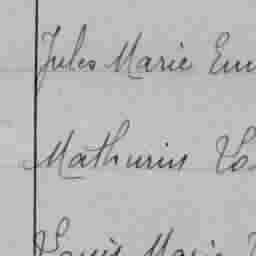 Jules Marie Em
Mathurin
Louis Marie